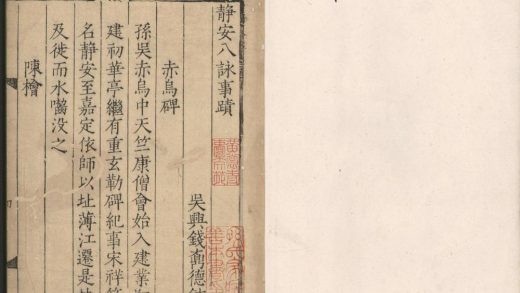 静安八詠事蹟
吳興錢鼒德
赤烏碑
孫吳赤烏中天竺康僧會始入建業
建初華亭繼有重玄勒碑紀事宋祥符
名静安至嘉定依師以址薄江遷是
及徙而水囓没之
陳檜